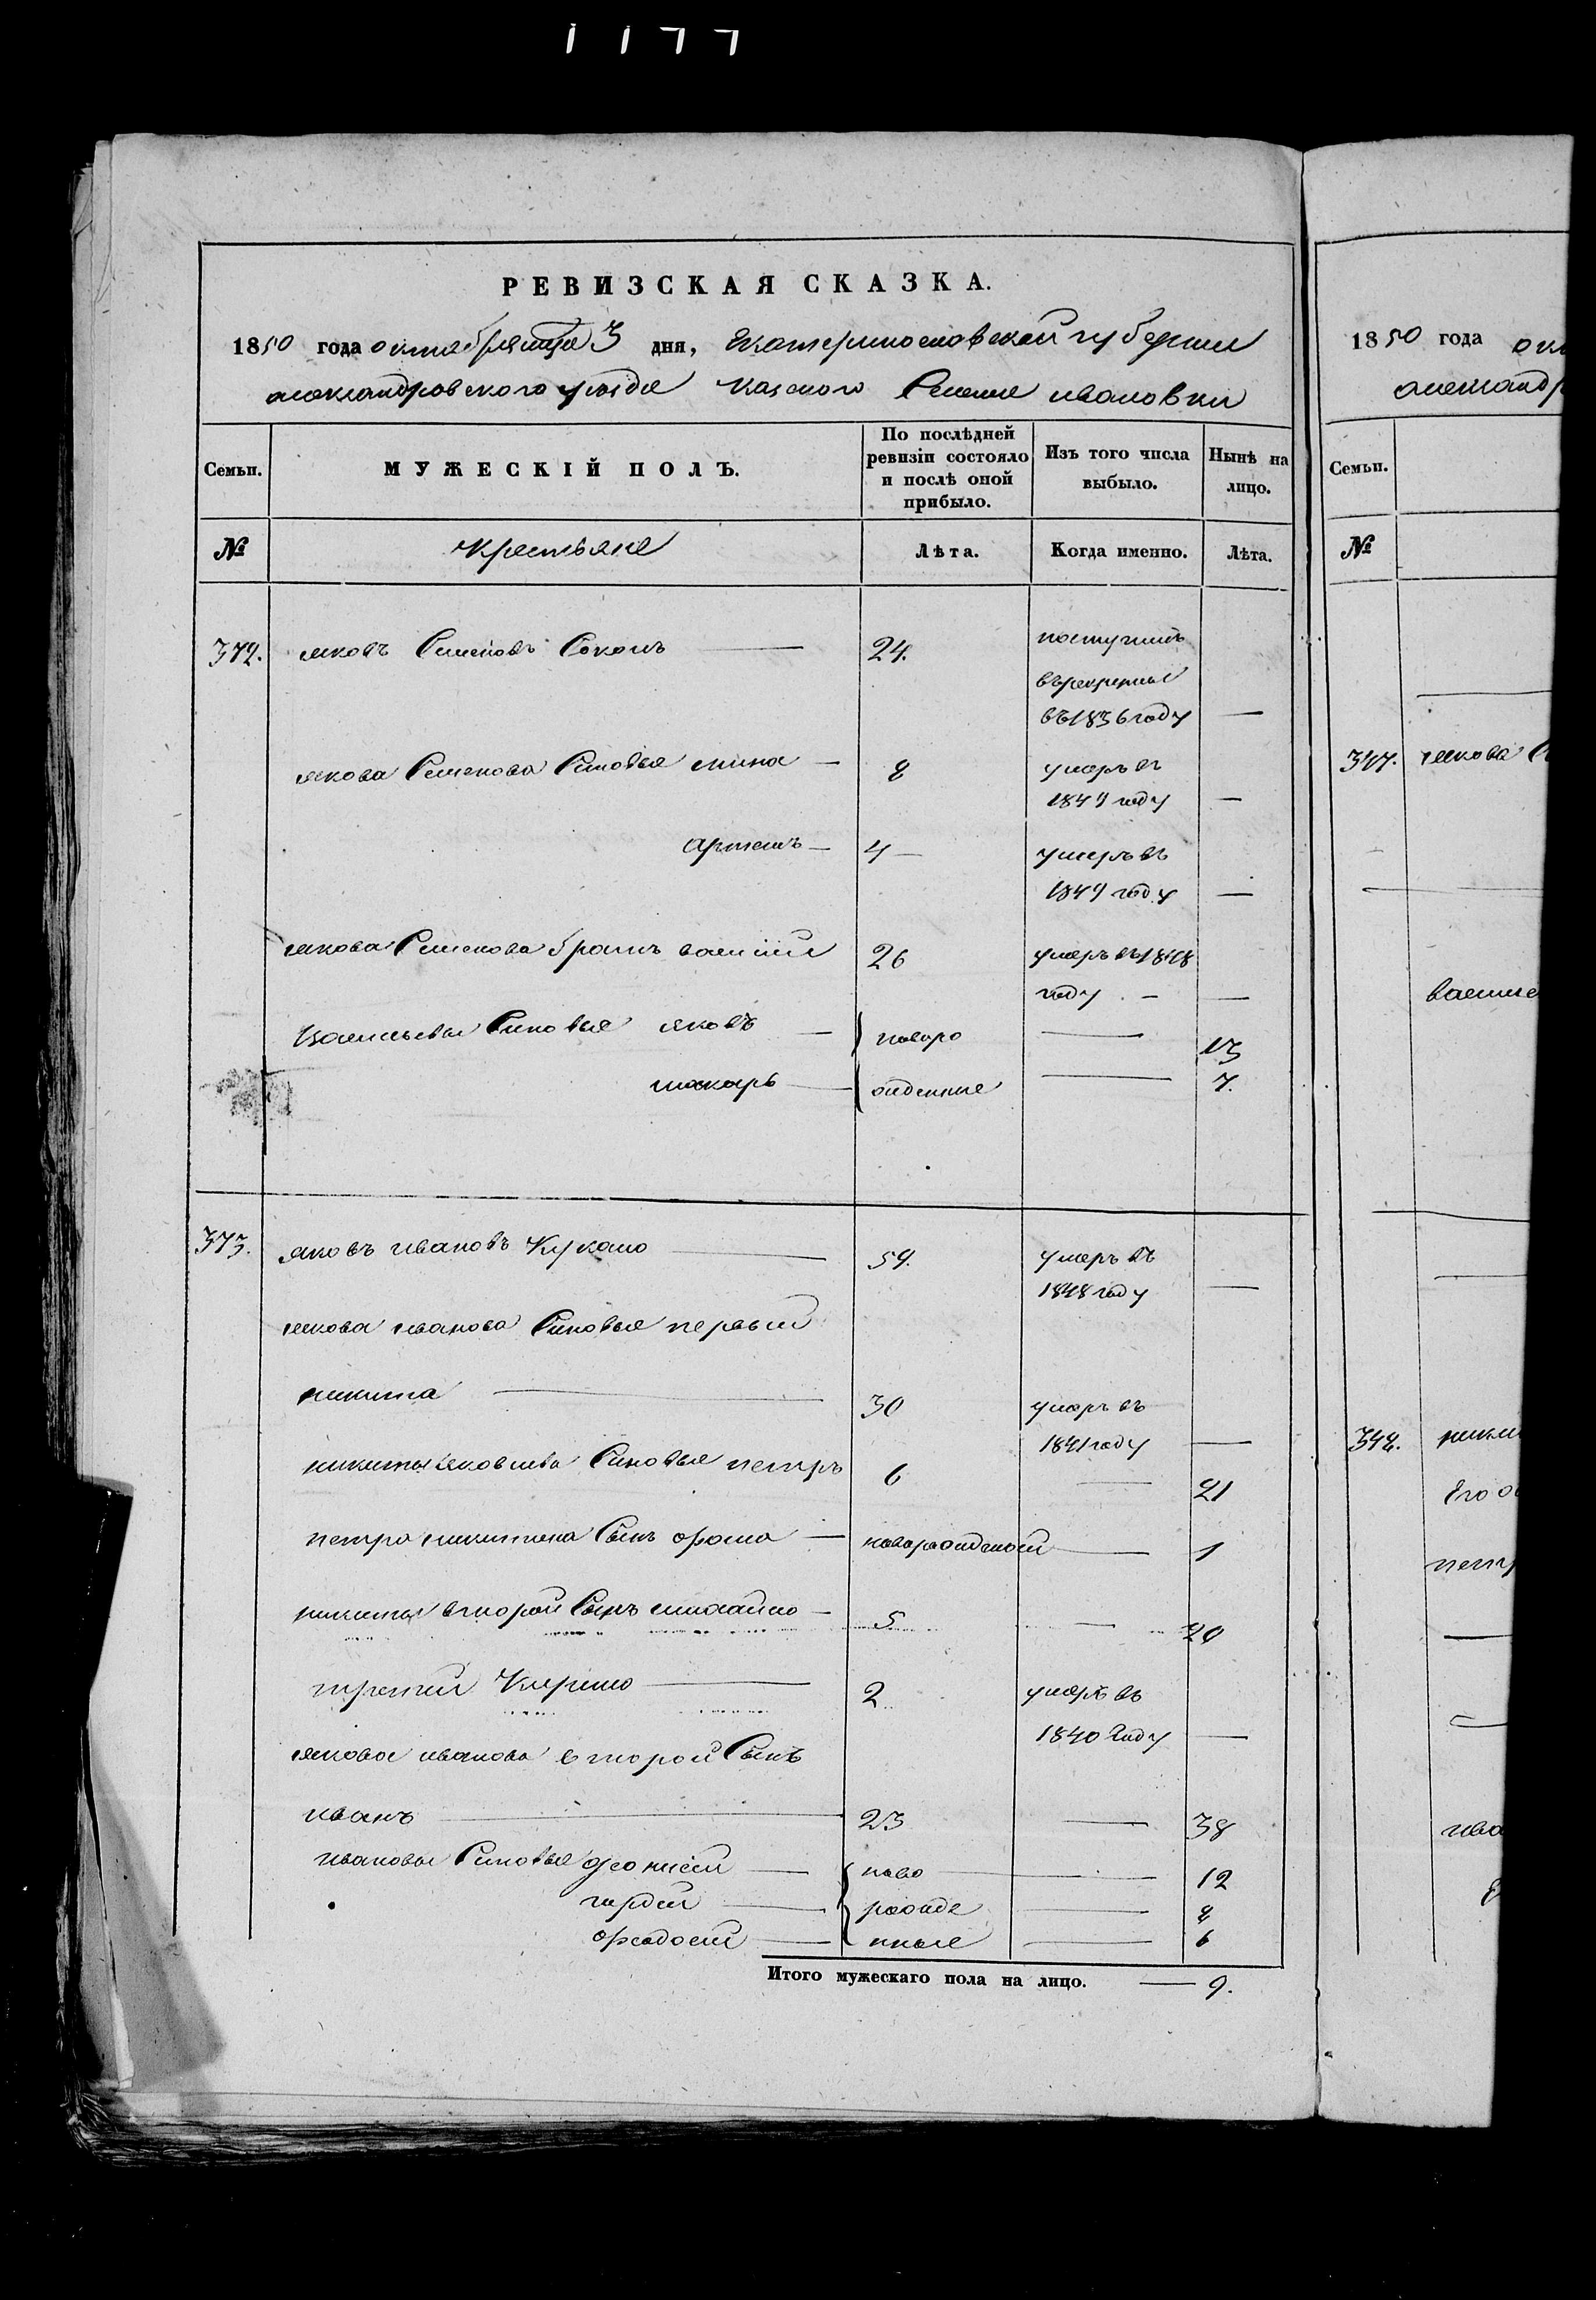 1177
РЕВИЗСКАЯ СКАЗКА.
1850 года октября мца 3 дня, Екатеринославской губернии
александровского уезда казеного Селения ивановки
Семьи. МУЖЕСКІЙ ПОЛЪ. По послѣдней ревизіи состояло и послѣ оной прибыло. Изъ того числа выбыло. Нынѣ на лицо.
№ Крестьяне Лѣта. Когда именно. Лѣта.
372. яковъ Семеновъ Соколъ 24. поступилъ
въ рекруты
въ 1836 году —
якова Семенова Синовья мина — 8 умеръ въ
1849 году —
артемъ — 4 — умеръ въ
1849 году —
якова Семенова братъ василий 26 умеръ въ 1848
году. — —
Васильевы Синовья яковъ — новоро — 13
макаръ — жденные — 7.
373. яковъ ивановъ Кукало 59. умеръ въ
1848 году —
якова иванова Синовья первый
никита — 30 умеръ въ
1841 году —
никиты яковлева Синовья петръ 6 — 21
петра никитина Сынъ фома — новорожденой — 1
никиты второй Сынъ михайло — 5 — 20
третий Кирило — 2 умеръ въ
1840 году —
якова иванова второй Сынъ
иванъ — 23 — 38
ивановы Синовья — ново — 12
гордей — рожде — 8
федосей — нные — 6
Итого мужескаго пола на лицо. — 9.
1850 года
Семьи.
№
347. якова
348.